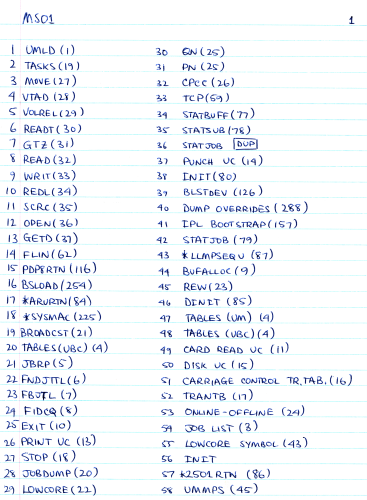 MS01 1
1 UMLD (1)
2 TASKS (19)
3 MOVE (27)
4 VTAD (28)
5 VOLREL (29)
6 READT (30)
7 GTZ (31)
8 READ (32)
9 WRIT (33)
10 REDL (34)
11 SCRC (35)
12 OPEN (36)
13 GETD (37)
14 FLIN (62)
15 PDPSRTN (116)
16 BSLOAD (254)
17 *ARURTN (84)
18 *SYSMAC (225)
19 BROADCST (21)
20 TABLES (UBC) (4)
21 JBRP (5)
22 FNDJTTL (6)
23 FBJTL (7)
24 FIDCQ (8)
25 EXIT (10)
26 PRINT UC (13)
27 STOP (18)
28 JOBDUMP (20)
29 LOWCORE (22)
30 QN (25)
31 PN (25)
32 CPCC (26)
33 TCP (59)
34 STATBUFF (77)
35 STATSUB (78)
36 STATJOB DUP
37 PUNCH UC (14)
38 INIT (80)
39 BLSTDEV (126)
40 DUMP OVERRIDES (288)
41 IPL BOOTSTRAP (157)
42 STATJOB (79)
43 *LLMPSEQU (87)
44 BUFALLOC (9)
45 REW (23)
46 DINIT (85)
47 TABLES (UM) (4)
48 TABLES (UBC) (4)
49 CARD READ UC (11)
50 DISK UC (15)
51 CARRIAGE CONTROL TR.TAB. (16)
52 TRANTB (17)
53 ONLINE-OFFLINE (24)
54 JOB LIST (3)
55 LOWCORE SYMBOL (43)
56 INIT
57 *2501RTN (86)
58 UMMPS (45)